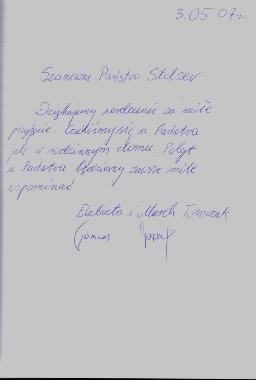 3.05 07r.
Szanowni Państwo Stolzev
Dziękujemy serdecznie za miłe
przyjęcie. Czuliśmy się u Państwa
jak w rodzinnym domu. Pobyt
u Państwa będziemy zawsze mile
wspominać
Elżbieta i Marek Tomczak